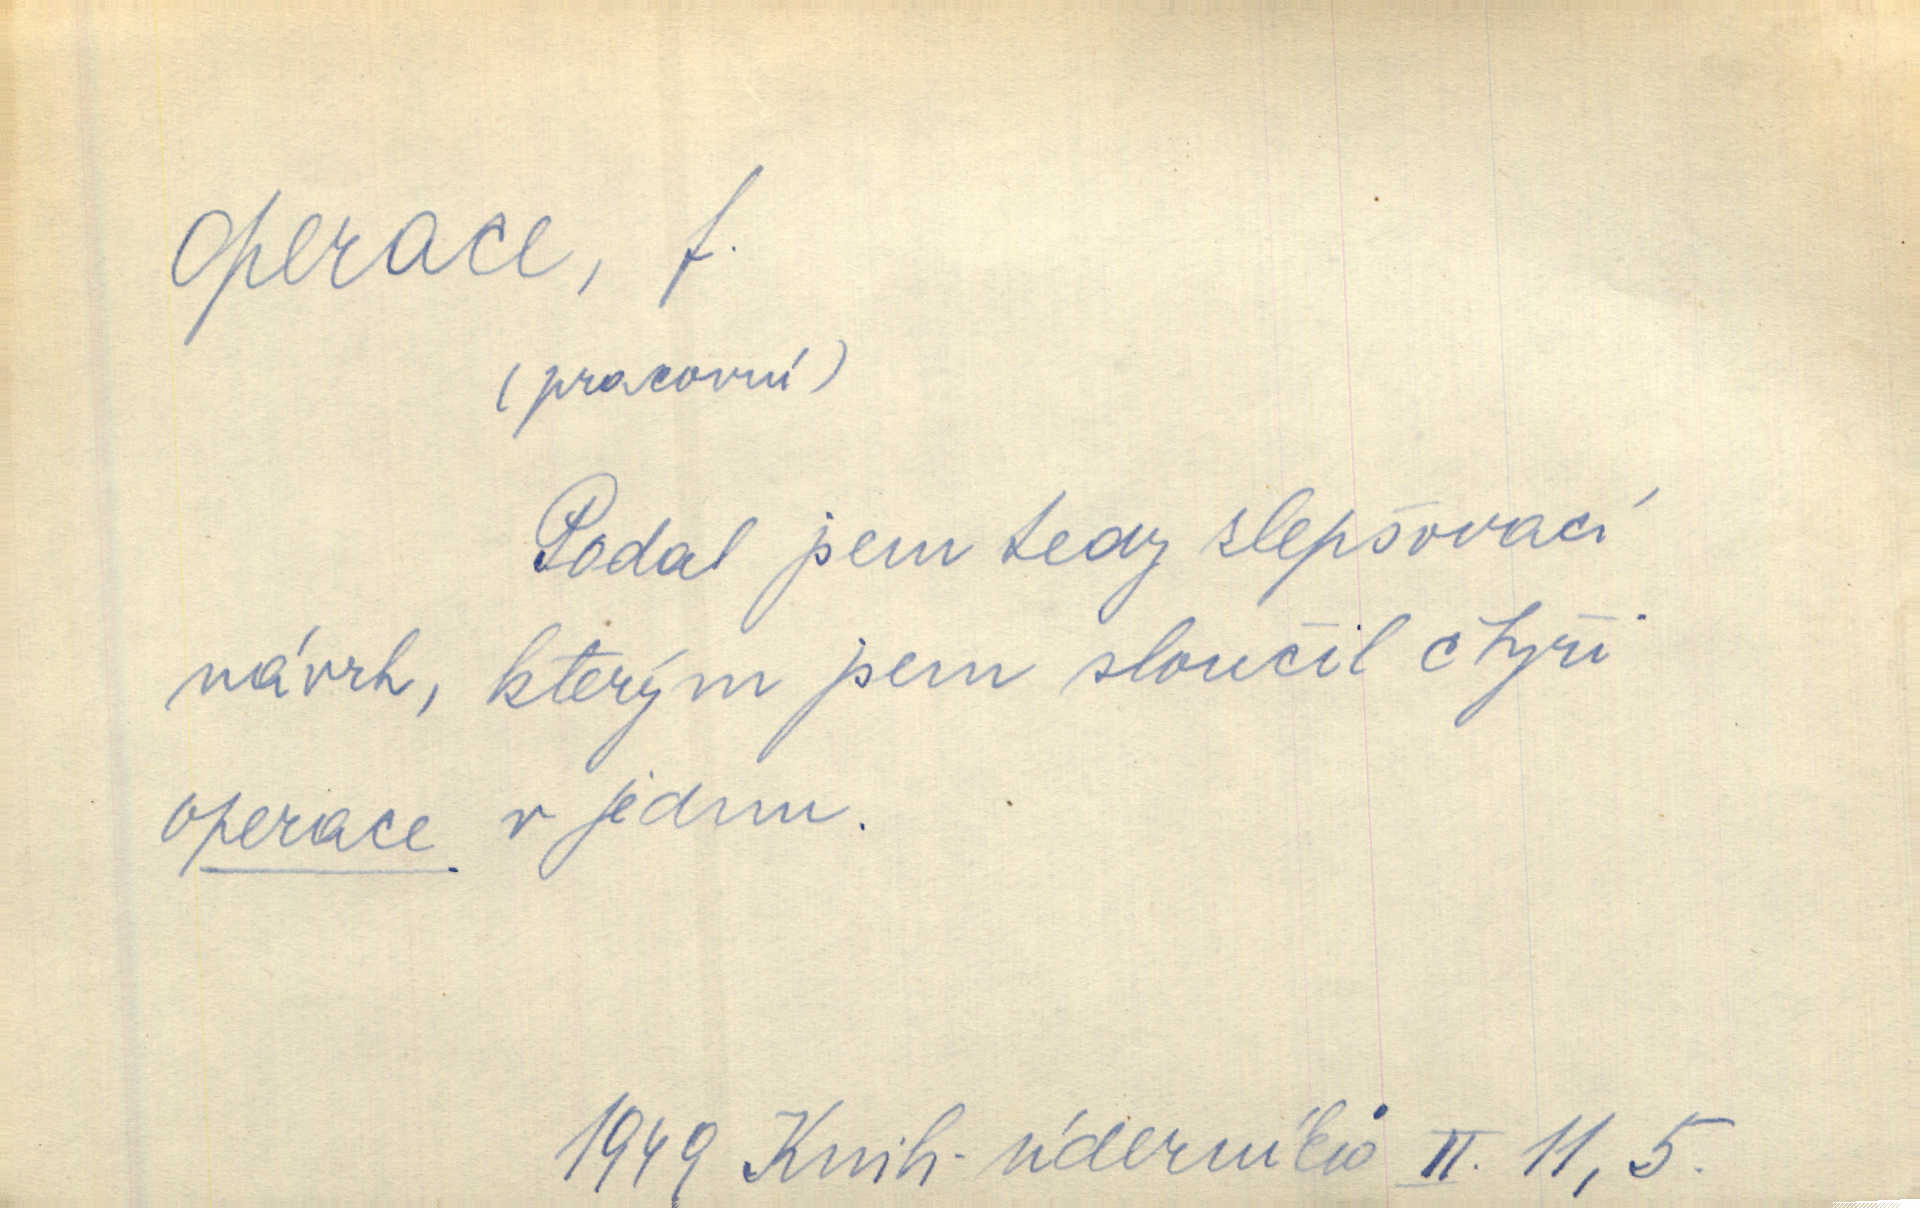 operace, f.
(pracovní)
Podal jsem tedy zlepšovací
návrh, kterým jsem sloučil čtyři
operace v jednu.
1949 Knih. úderníků II. 11, 5.